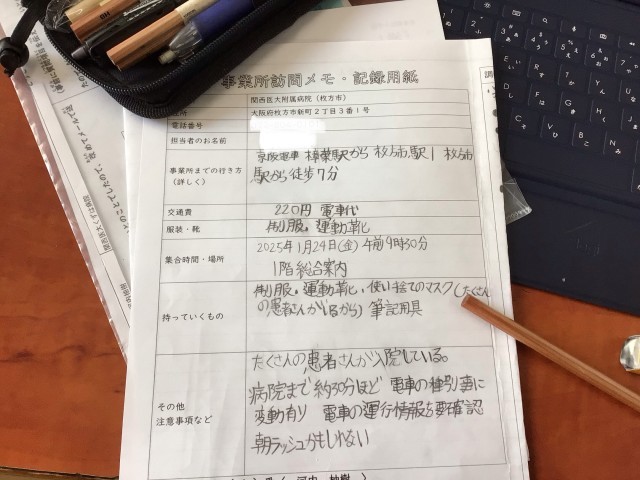 事業所訪問メモ・記録用紙
関西医大附属病院（枚方市）
大阪府枚方市新町２丁目３番１号
電話番号
担当者のお名前
事業所までの行き方
（詳しく）
京阪電車 樟葉駅から 枚方市駅 枚方市
駅から徒歩7分
交通費
220円 電車代
服装・靴
制服。運動靴
集合時間・場所
2025年1月24日(金)午前9時30分
1階総合案内
持っていくもの
制服。運動靴。使い捨てのマスク(たくさん
の患者さんがいるから) 筆記用具
その他
注意事項など
たくさんの患者さんが入院している。
病院まで約30分ほど 電車の種別事に
変動有り 電車の運行情報を要確認
朝ラッシュかもしれない